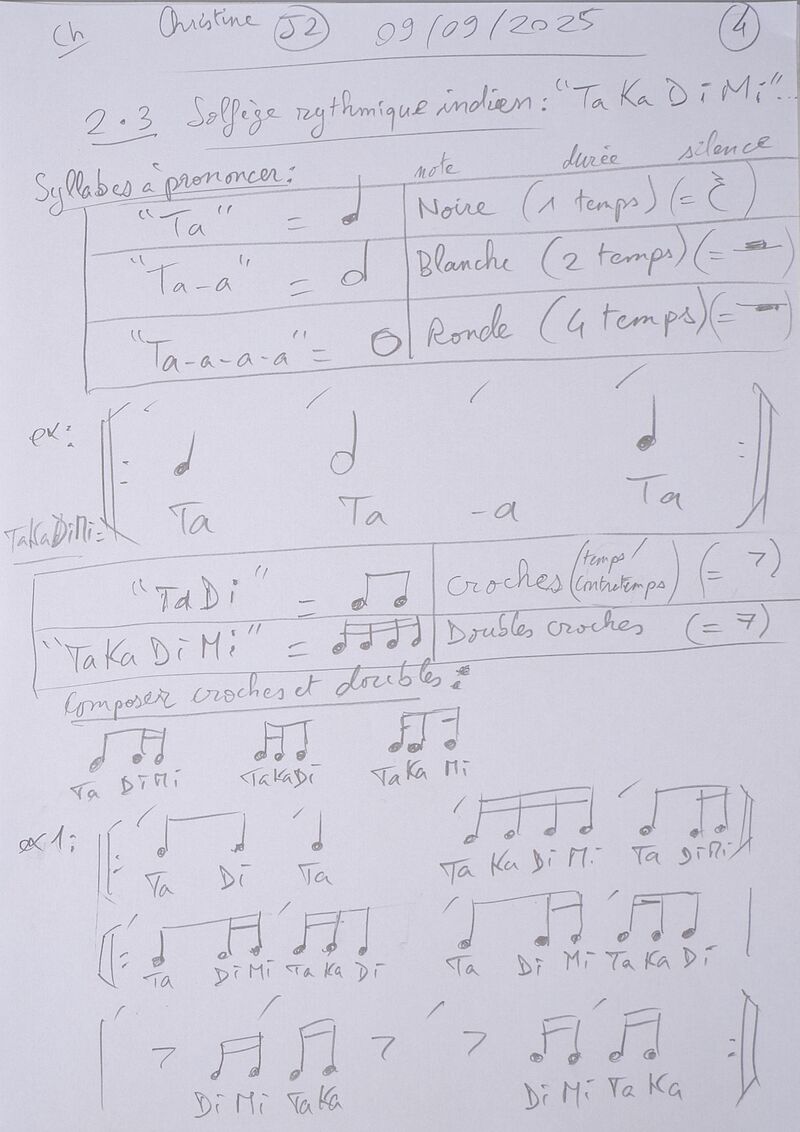 Ch Christine J2 09/09/2025 4
2.3 Solfège rythmique indien : "Ta Ka Di Mi"...
Syllabes à prononcer : note durée silence
"Ta" = Noire (1 temps) (= )
"Ta-a" = Blanche (2 temps) (= )
"Ta-a-a-a" = Ronde (4 temps) (= )
ex :
Ta Ta -a Ta
TaKaDiMi :
"TaDi" = Croches (temps/contretemps) (= )
"TaKa Di Mi" = Doubles croches (= )
Composer croches et doubles :
Ta Di Mi TaKaDi TaKa Mi
ex 1 :
Ta Di Ta Ta Ka Di Mi Ta DiMi
Ta Di Mi Ta Ka Di Ta Di Mi Ta Ka Di
Di Mi TaKa Di Mi Ta Ka